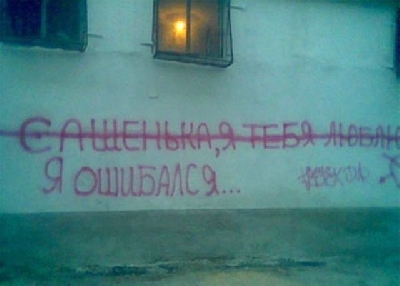 САШЕНЬКА, Я ТЕБЯ ЛЮБЛЮ
Я ОШИБАЛСЯ...